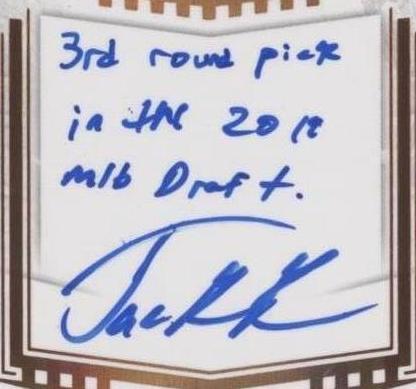 3rd round pick
in the 2018
mlb Draft.
Jack K